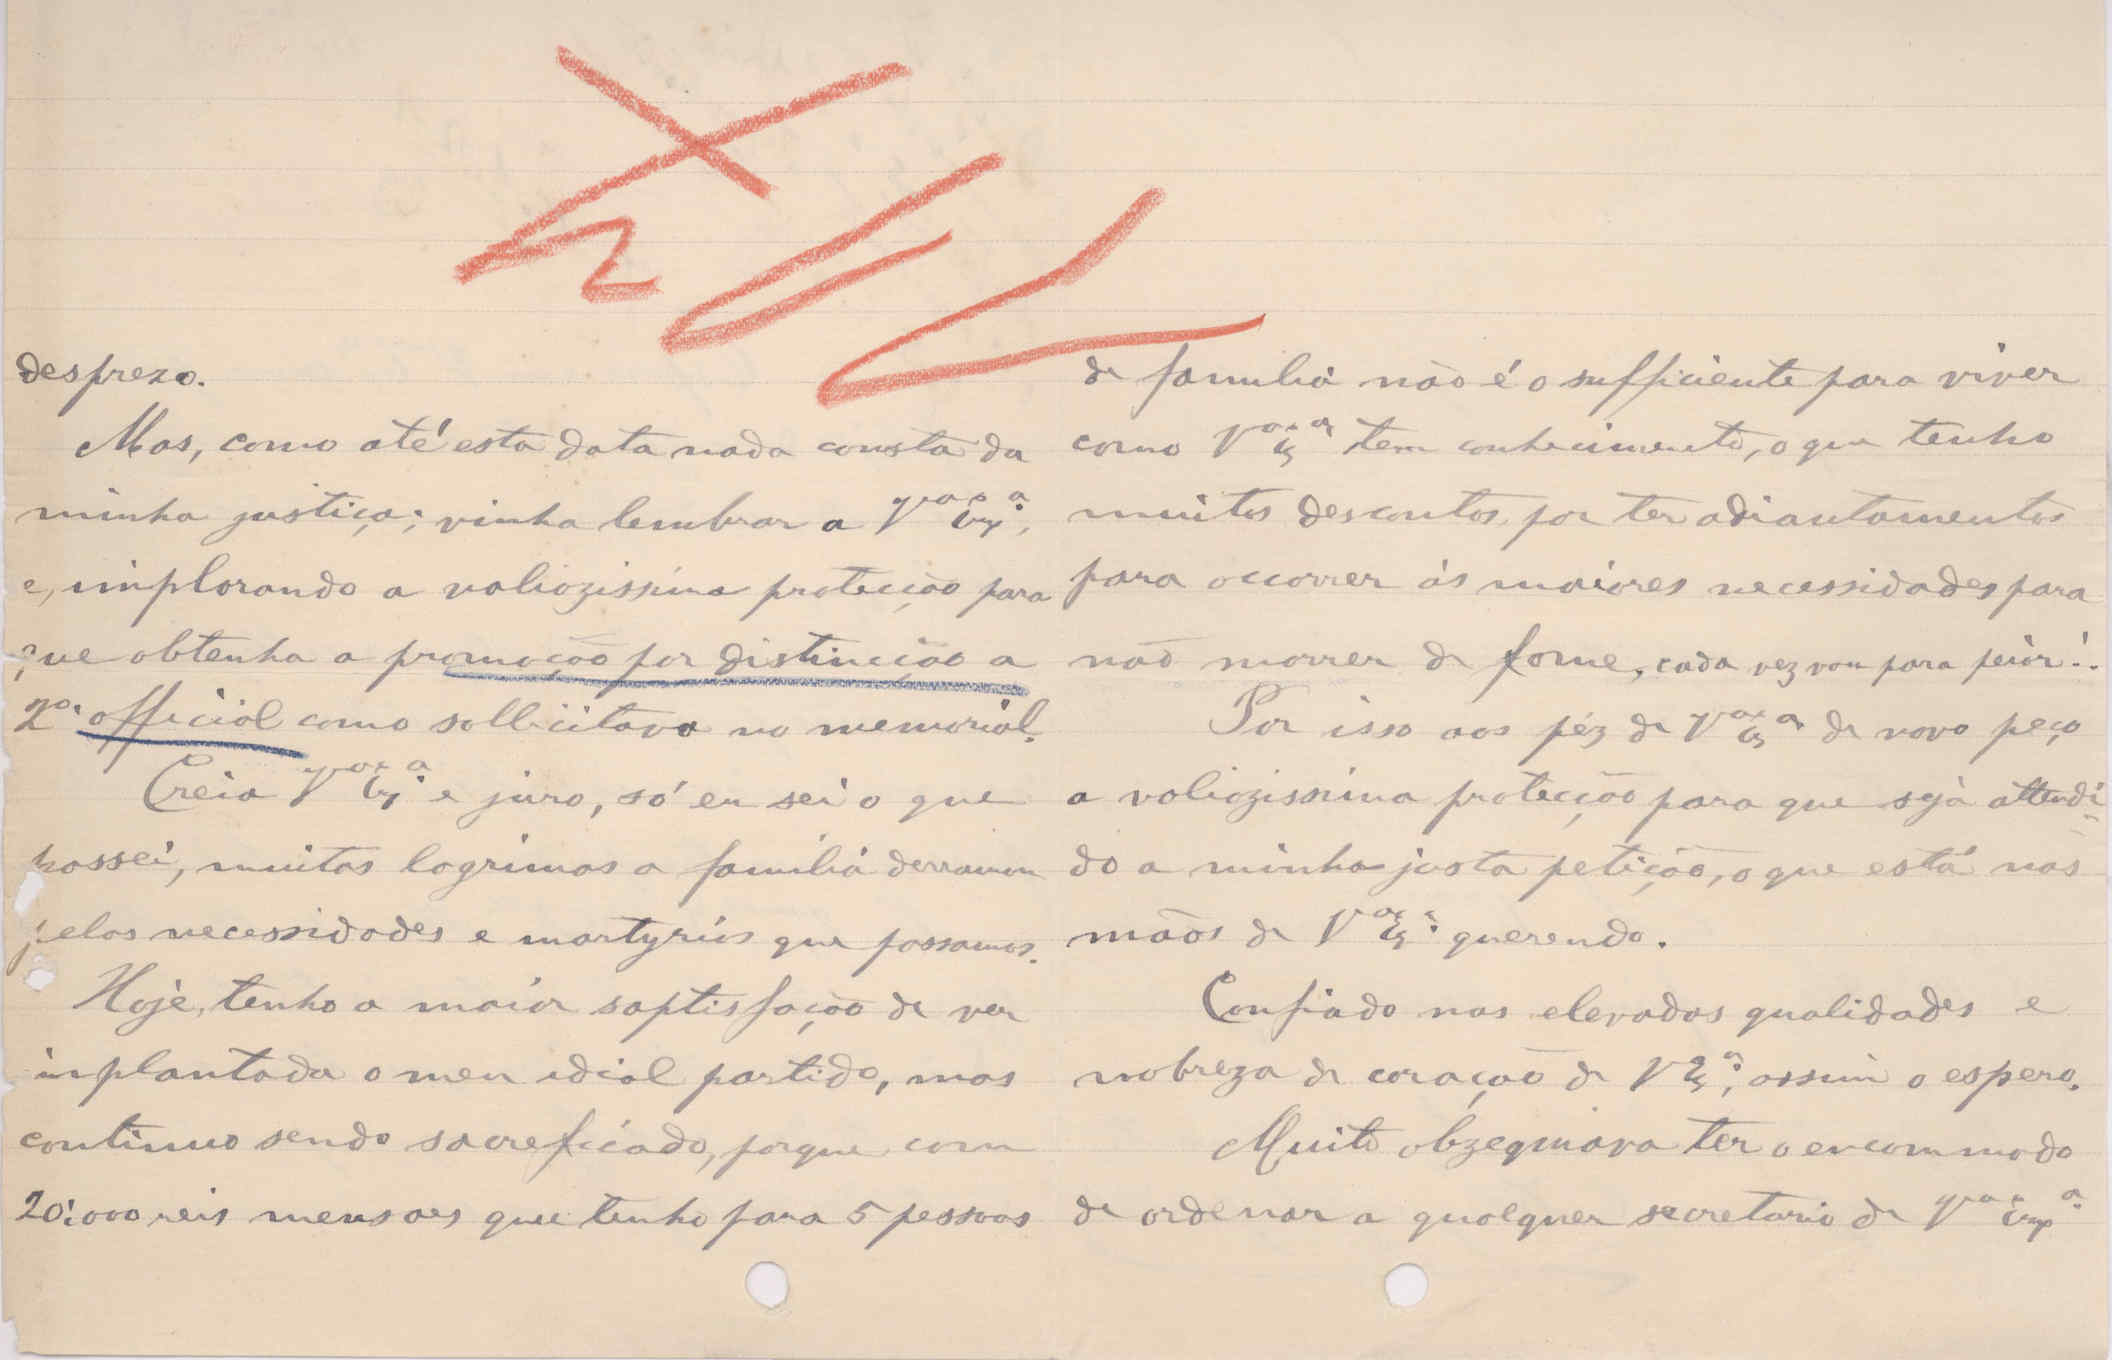 desprezo.
Mas, como até esta data nada consta da
minha justiça; vinha lembrar a V.ª Ex.ª,
e, implorando a valiozissima protecção para
que obtenha a promoção por distincção a
2º. official como sollicitava no memorial.
Creia V.ª Ex.ª e juro, só eu sei o que
passei, muitas lagrimas a familia derramou
pelas necessidades e martyrios que passamos.
Hoje, tenho a maior saptisfação de ver
inplantada o meu idial partido, mas
continuo sendo sacreficado, porque com
20:000 reis mensaes que tenho para 5 pessoas
de familia não é o sufficiente para viver
como V.ª Ex.ª tem conhecimento, o que tenho
muitos descontos, por ter adiantamentos
para occorrer ás maiores necessidades para
não morrer de fome, cada vez vou para peior!.
Por isso aos péz de V.ª Ex.ª de novo peço
a valiozissima protecção para que seja attendi-
do a minha justa petição, o que está nas
mãos de V.ª Ex.ª querendo.
Confiado nas elevadas qualidades e
nobreza de coração de V. Ex.ª, assim o espero.
Muito obzequiava ter o encommodo
de ordenar a qualquer secretario de V.ª Ex.ª